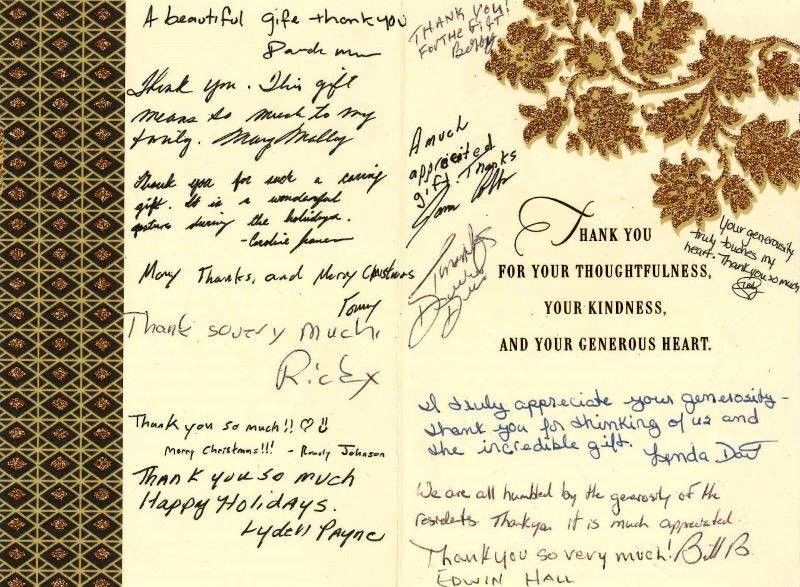 A beautiful gife thank you
Thank you. This gift
means so much to my
family. Mary Mally
Thank you for such a caring
gift. It is a wonderful
gesture during the holidays.
- Caroline
Many Thanks, and Merry Christmas
Tommy
Thank so very much,
Rickx
Thank you so much!! ♡
Merry Christmas!!! - Randy Johnson
Thank you so much
Happy Holidays.
Lydell Payne
THANK YOU!
FOR THE GIFT
Bobby
A much
appreciated
gift. Thanks
Tom
Thanks
THANK YOU
FOR YOUR THOUGHTFULNESS,
YOUR KINDNESS,
AND YOUR GENEROUS HEART.
Your generosity
truly touches my
heart. Thank you so much
I truly appreciate your generosity -
thank you for thinking of us and
the incredible gift. Lenda
We are all humbled by the generosity of the
residents Thankyou it is much appreciated.
Thank you so very much! Bill B.
EDWIN HALL